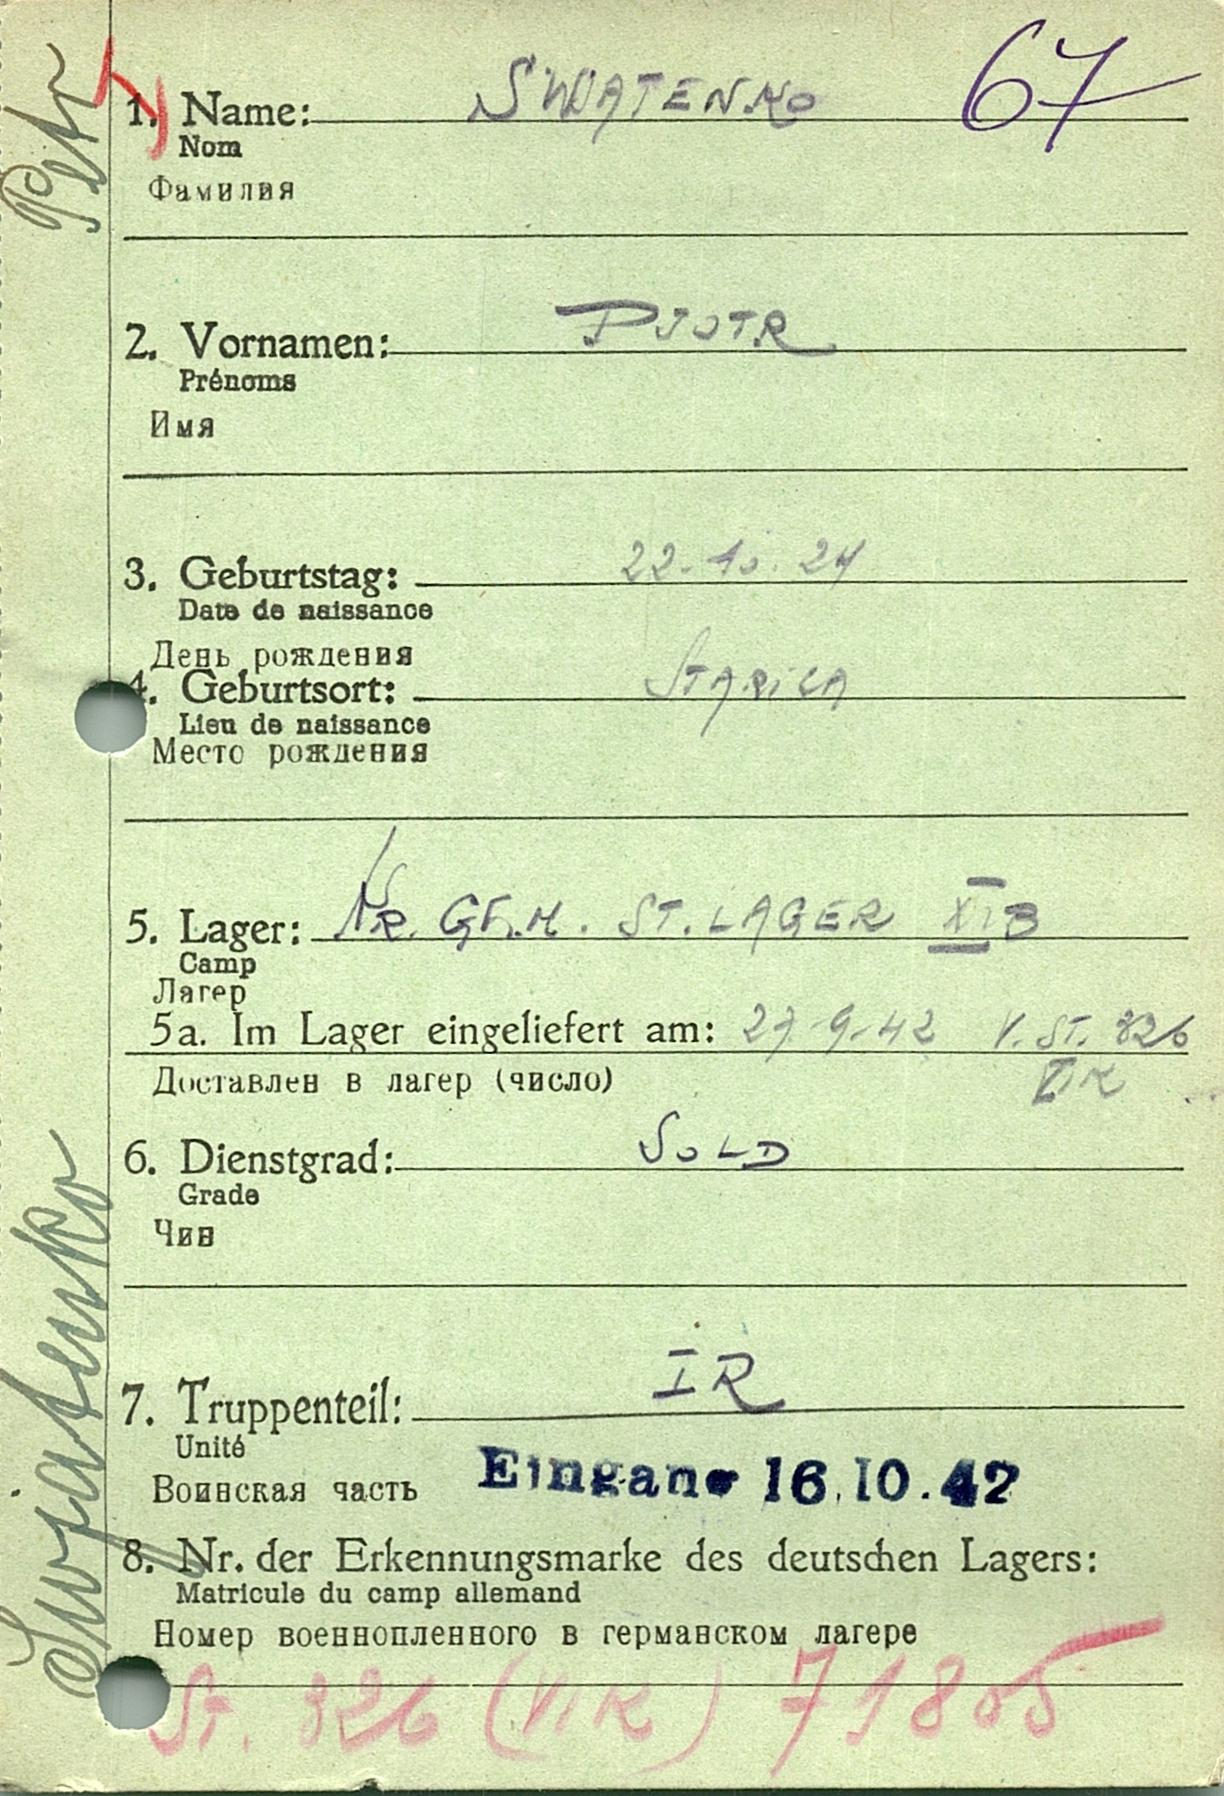 1. Name: SWJATENKO 67
Nom
Фамилия
2. Vornamen: PJOTR
Prénoms
Имя
3. Geburtstag: 22.10.24
Date de naissance
День рождения
4. Geburtsort: STARICA
Lieu de naissance
Место рождения
5. Lager: KR. GF. M. ST. LAGER XIB
Camp
Лагер
5a. Im Lager eingeliefert am: 27.9.42 V. ST. 326
VIK
Доставлен в лагер (число)
6. Dienstgrad: SOLD
Grade
Чин
7. Truppenteil: IR
Unité
Воинская часть Eingang 16.10.42
8. Nr. der Erkennungsmarke des deutschen Lagers:
Matricule du camp allemand
Номер военнопленного в германском лагере
St. 326 (VIK) 71805
Swjatenko Petr